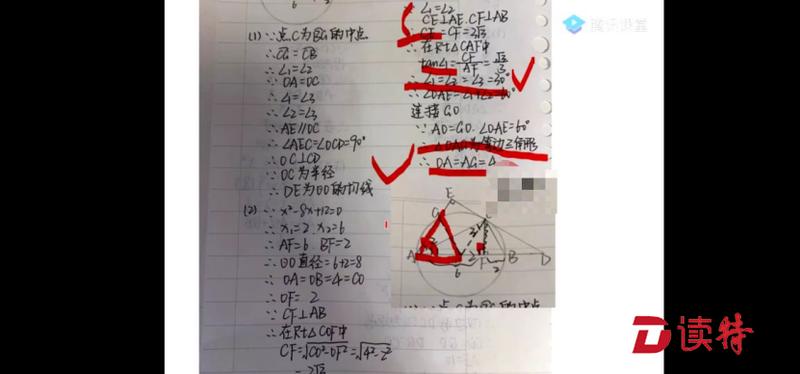 (1) ∵点C为BG的中点
∴CG=CB
∴∠1=∠2
∵OA=OC
∴∠1=∠3
∴∠2=∠3
∴AE∥OC
∴∠AEC=∠OCD=90°
∴OC⊥CD
∵OC为半径
∴DE为⊙O的切线
(2) ∵x²-8x+12=0
∴x₁=2 x₂=6
∴AF=6 BF=2
∴⊙O直径=6+2=8
∴OA=OB=4=CO
∴OF=2
∵CF⊥AB
∴在Rt△COF中
CF=√CO²-OF²=√4²-2²
=2√3
∵∠1=∠2
CE⊥AE.CF⊥AB
∴CE=CF=2√3
∴在Rt△CAF中
tan∠1=CF/AF=√3/3
∴∠1=∠2=∠3=30°
∴∠OAE=∠1+∠2=60°
连接GO
∵AO=GO.∠OAE=60°
∴△OAG为等边三角形
∴OA=AG=4
E
G
A
B
D
6
2
2
F
腾讯课堂
读特